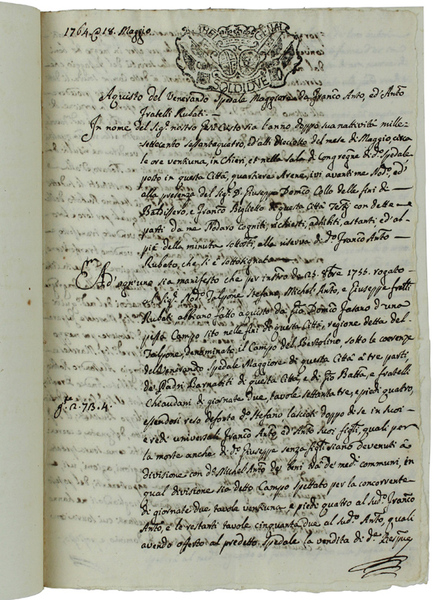 1764. a 18. Maggio
SOLDI DVE
Aquisto del Venerando Spedale Maggiore da Franco Anto, ed Anto
Fratelli Rubati.
In nome del Sigr nostro Gesù Cristo sia l'anno doppo sua natività mille-
settecento sessantaquattro, ed alli dieciotto del mese di Maggio, circa
le ore ventuna, in Chieri, et nella Sala di Congregne di do Spedale
posto in questa Città, quartiere Arene, ivi avanti me Nodo, ed
alla presenza del Sigr Giuseppe Domco Collo delle fini di
Baldissero, e Franco di questa Città Testj con dette
parti da me Nodaro cogniti, richiesti, adhibiti, astanti, ed al
piè della minuta sottotti, alla riserva di do Franco Anto
Rubato, che si è sottosegnato
Ad ogn'uno sia manifesto che per instro de 23. 9bre 1755. rogato
Sigr Nodo Stefano, Michel Anto, e Giuseppe fratelli
Rubati abbiano fatto aquisto da Domco d'una
pezza Campo sito nelle fini di questa Città, regione detta del
denominato il Campo del sotto le coerenze
del Venerando Spedale Maggiore di questa Città a tre parti,
de Padri Barnabiti di questa Città, e di Gio Batta, e fratelli
di giornate due, tavole settantatre, e piedi quattro,
essendosi reso deffonto do Stefano lasciati doppo di se in suoi
eredi universali Franco Anto ed Anto suoi figlj, quali per
la morte anche di do Giuseppe senza figli siano devenuti a
divisione con do Michel Anto de beni da de' medi communi, in
qual divisione sia detto Campo spettato per la concorrente
di giornate due tavole ventuna e piedi quattro al sudo Franco
Anto, e le restanti tavole cinquanta due al sudo Anto, quali
avendo offerto al predetto Spedale la vendita di da
g.te 2. 73. 4.